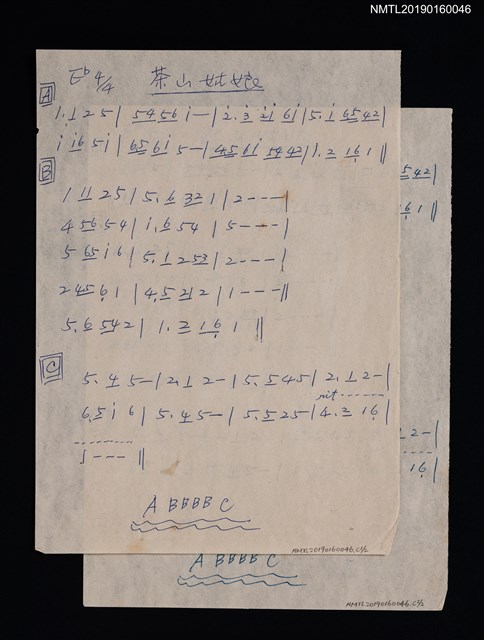 NMTL20190160046
E♭ 4/4 茶山姑娘
A
1. 1 2 5 | 5 4 5 6 i — | 2. 3 2 i 6 i | 5. i 6 5 4 2 |
i i 6 5 i | 6 5 6 i 5 — | 4 5 6 i 5 4 4 2 | 1. 2 1 6 1 ‖
B
1 1 1 2 5 | 5. 6 3 2 1 | 2 - - - |
4 5 6 5 4 | i. 6 5 4 | 5 - - - |
5 6 5 i 6 | 5. 1 2 5 3 | 2 - - - |
2 4 5 6 1 | 4. 5 2 1 2 | 1 - - - ‖
5. 6 5 4 2 | 1. 2 1 6 1 ‖
C
5. 4 5 — | 2. 1 2 — | 5. 5 4 5 | 2. 1 2 — |
rit - - - - - -
6. 5 i 6 | 5. 4 5 — | 5. 5 2 5 | 4. 2 1 6 |
1 - - - ‖
A BBBB C
NMTL20190160046.C1/2
5 4 2 |
6 1 ‖
1 2 — |
1 6 |
A BBBB C
NMTL20190160046.C1/2